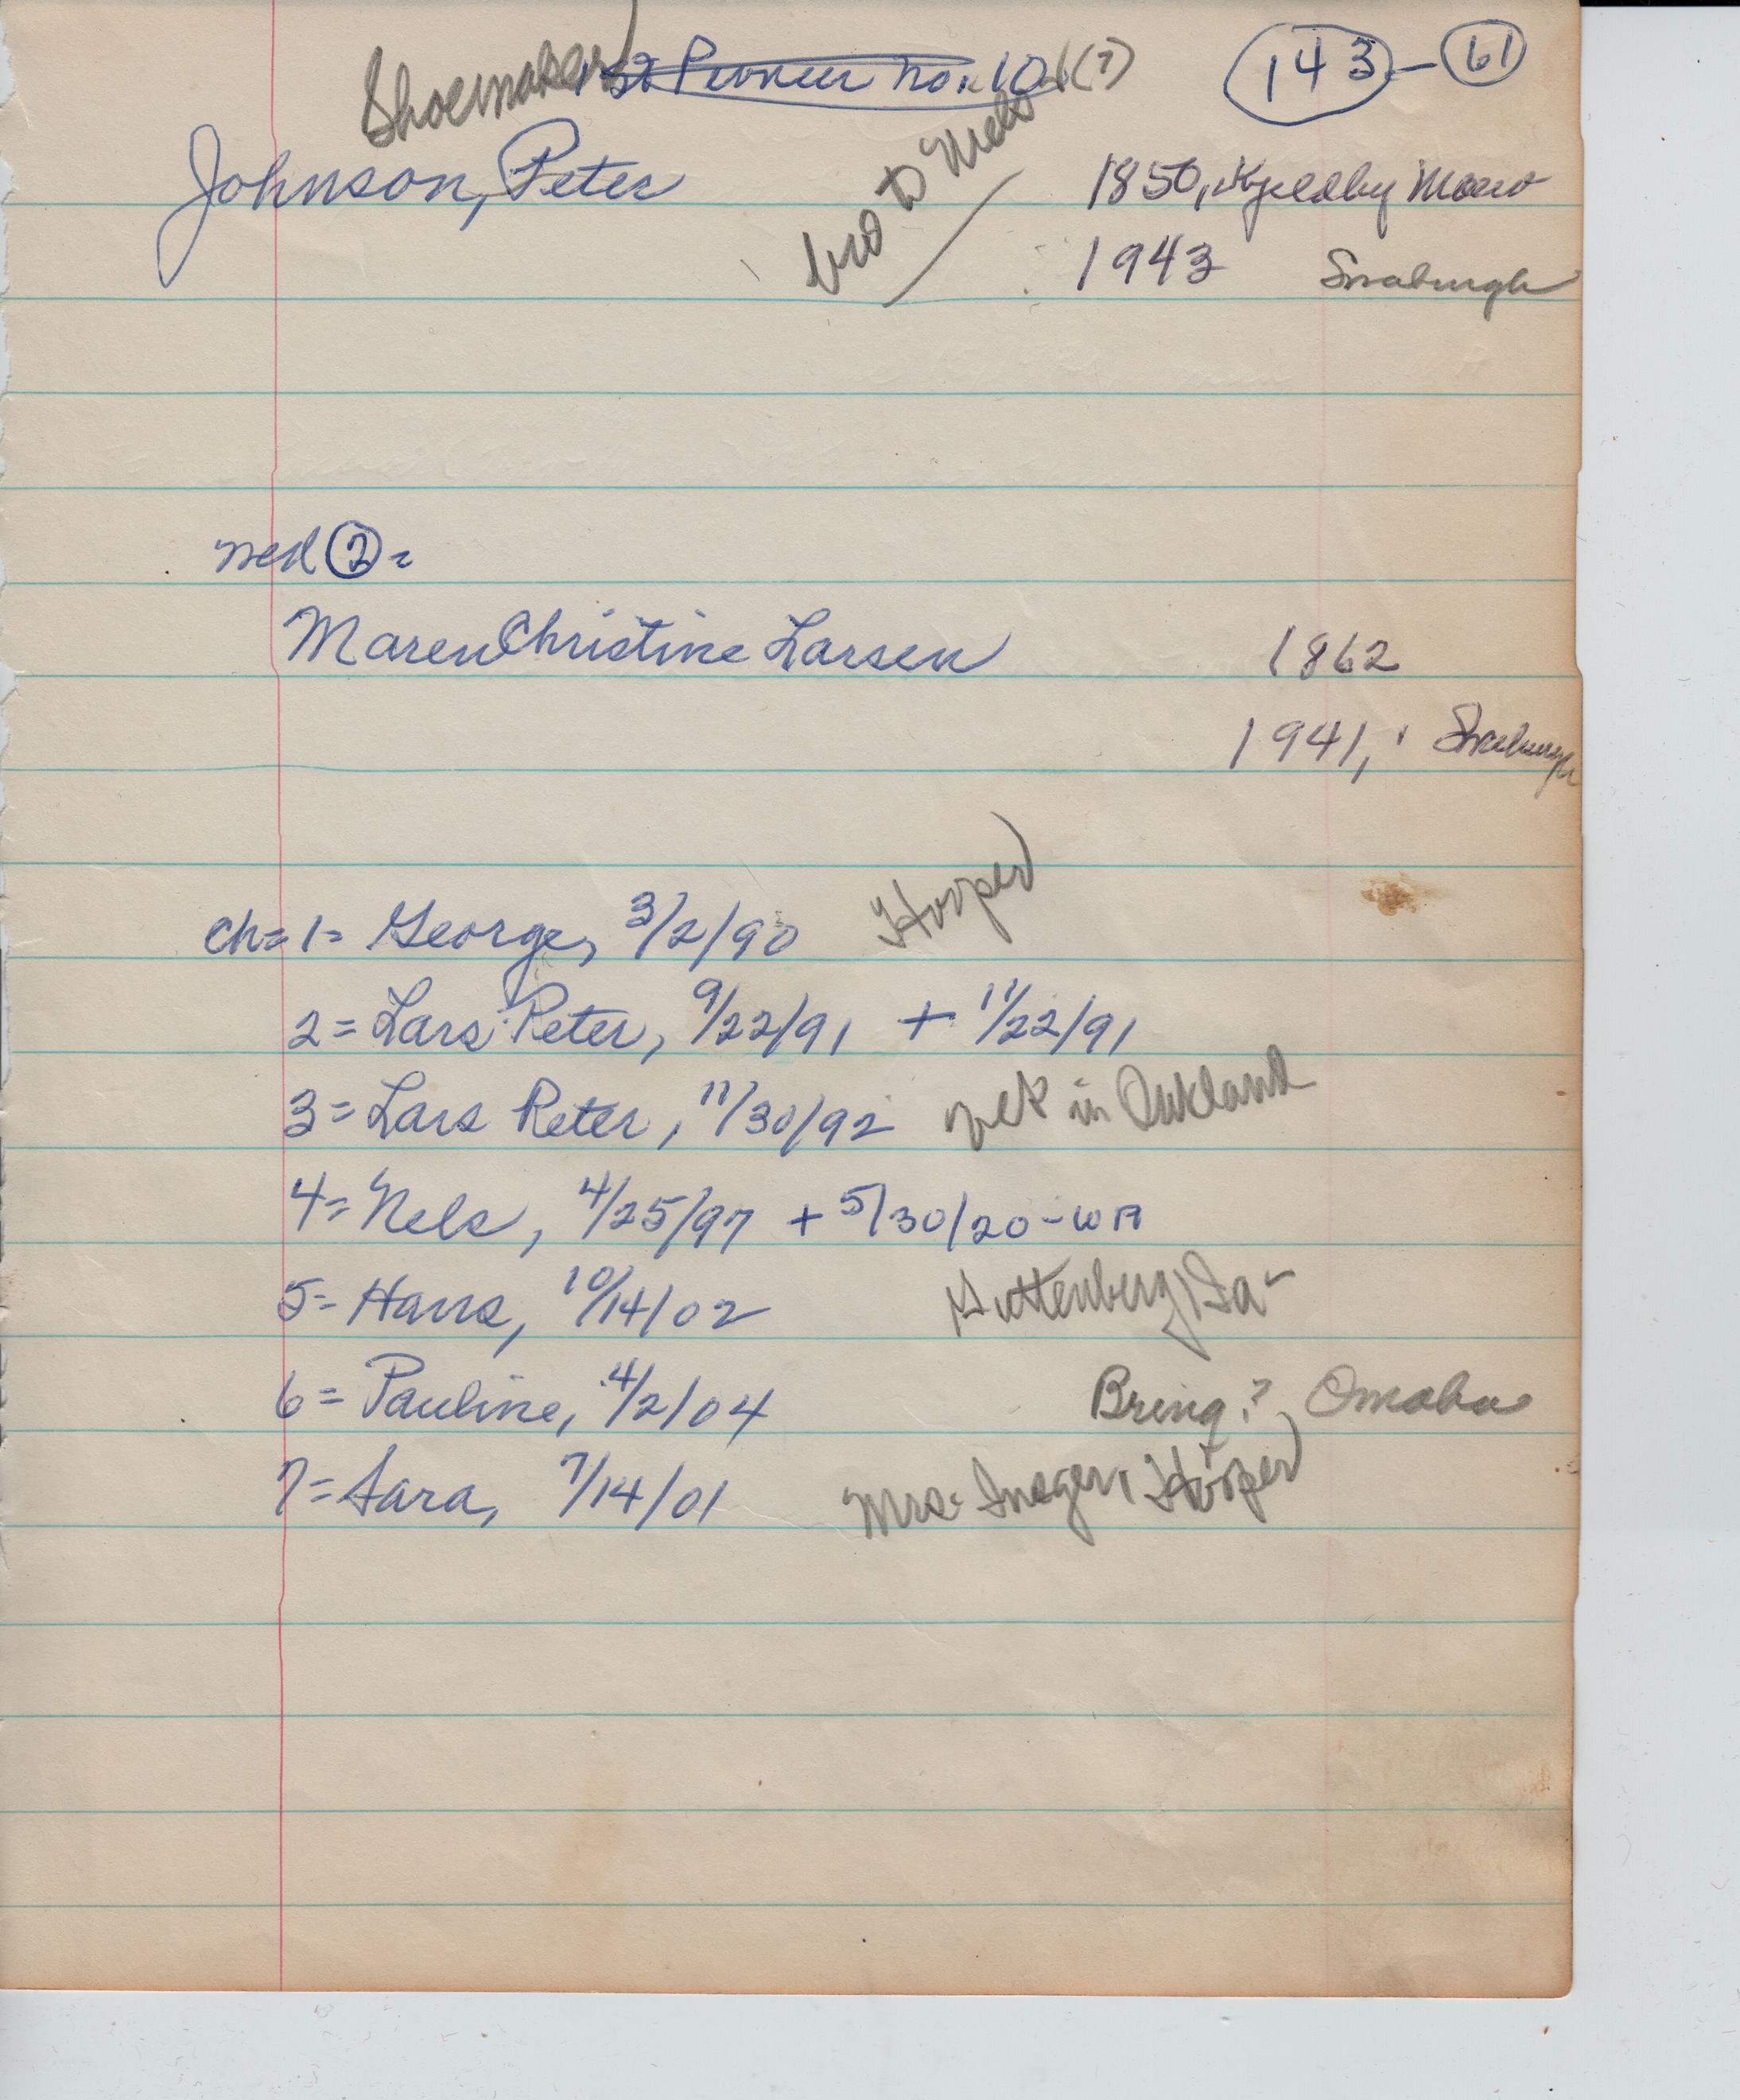 Shoemaker 1st Pioneer no. 10 (?) 143 - 61
Johnson, Peter bro to Nels 1850,
1943
med 2 =
Maren Christine Larsen 1862
1941,
ch= 1= George, 3/2/90 Hooper
2= Lars Peter, 9/22/91 + 11/22/91
3= Lars Peter, 11/30/92 in Oakland
4= Nels, 4/25/97 + 5/30/20 -
5= Hans, 10/14/02 Guttenberg, Ia-
6= Pauline, 4/2/04 Bring? Omaha
7= Sara, 7/14/01 Mrs. Hooper